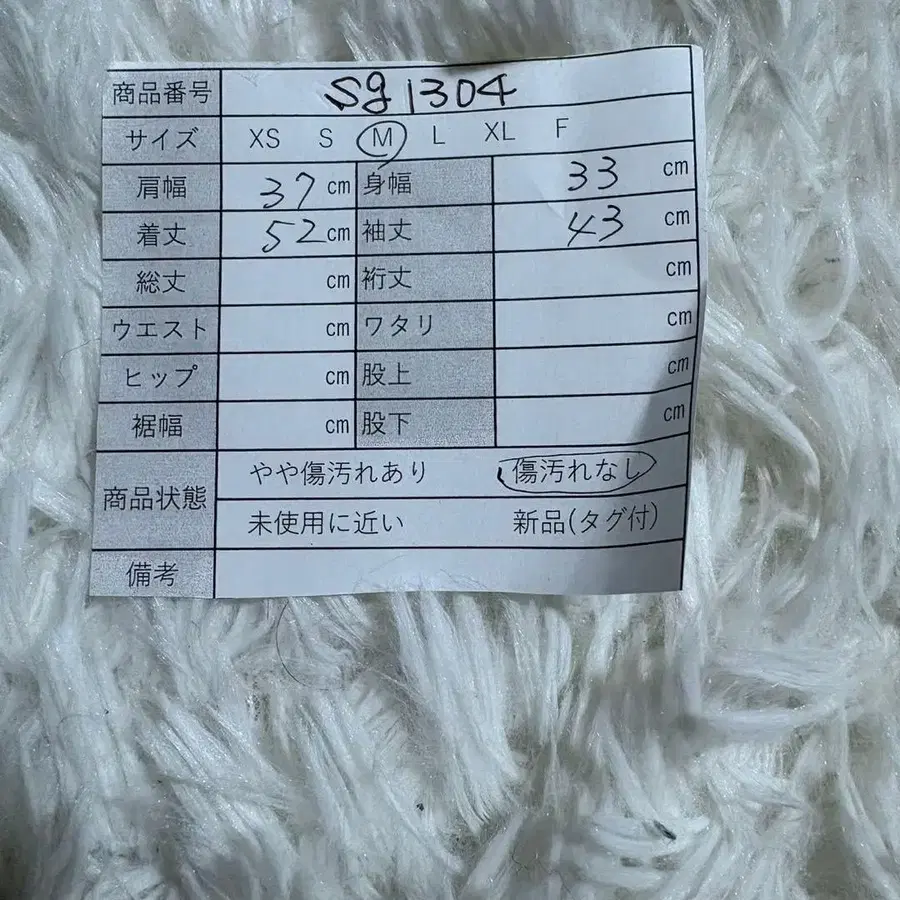 商品番号 sg1304
サイズ XS S M L XL F
肩幅 37 cm 身幅 33 cm
着丈 52 cm 袖丈 43 cm
総丈 cm 裄丈 cm
ウエスト cm ワタリ cm
ヒップ cm 股上 cm
裾幅 cm 股下 cm
商品状態 やや傷汚れあり 傷汚れなし
未使用に近い 新品(タグ付)
備考